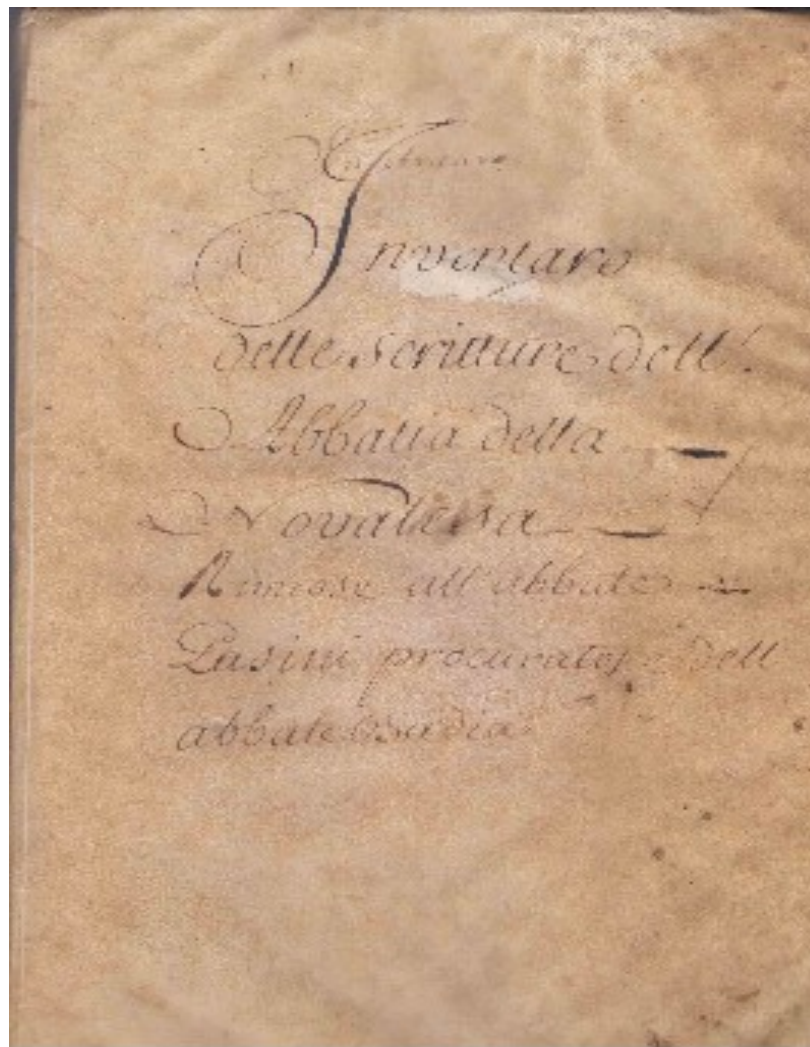 Inventaro
delle scritture dell'
Abbatia della
Novalesa
Rimesse all'abbate
Pasini procurator dell
abbate